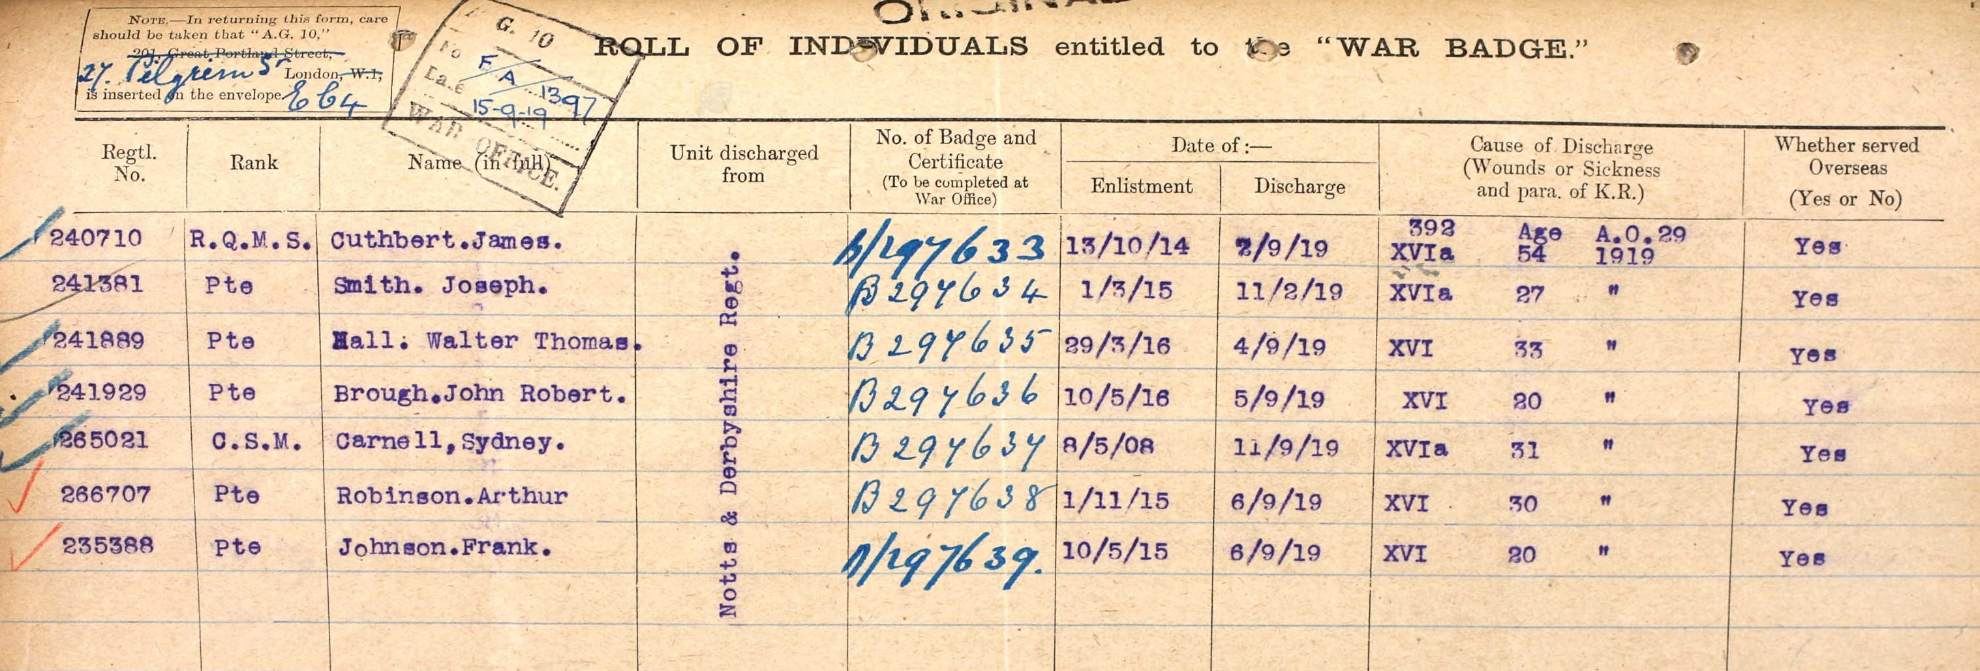 ORIGINAL
NOTE.—In returning this form, care
should be taken that "A.G. 10,"
291, Great Portland Street,
27. Pilgrim St London, W.1,
is inserted on the envelope. E C 4
A. G. 10
No F A 1397
Date 15-9-19
WAR OFFICE.
ROLL OF INDIVIDUALS entitled to the "WAR BADGE."
Regtl. No. Rank Name (in full) Unit discharged from No. of Badge and Certificate (To be completed at War Office) Date of :— Enlistment Discharge Cause of Discharge (Wounds or Sickness and para. of K.R.) Whether served Overseas (Yes or No)
Notts & Derbyshire Regt.
240710 R.Q.M.S. Cuthbert.James. B/297633 13/10/14 2/9/19 392 XVIa Age 54 A.O.29 1919 Yes
241381 Pte Smith. Joseph. B297634 1/3/15 11/2/19 XVIa 27 " Yes
241889 Pte Hall. Walter Thomas. B297635 29/3/16 4/9/19 XVI 33 " Yes
241929 Pte Brough.John Robert. B297636 10/5/16 5/9/19 XVI 20 " Yes
265021 C.S.M. Carnell,Sydney. B297637 8/5/08 11/9/19 XVIa 31 " Yes
266707 Pte Robinson.Arthur B297638 1/11/15 6/9/19 XVI 30 " Yes
235388 Pte Johnson.Frank. B/297639. 10/5/15 6/9/19 XVI 20 " Yes